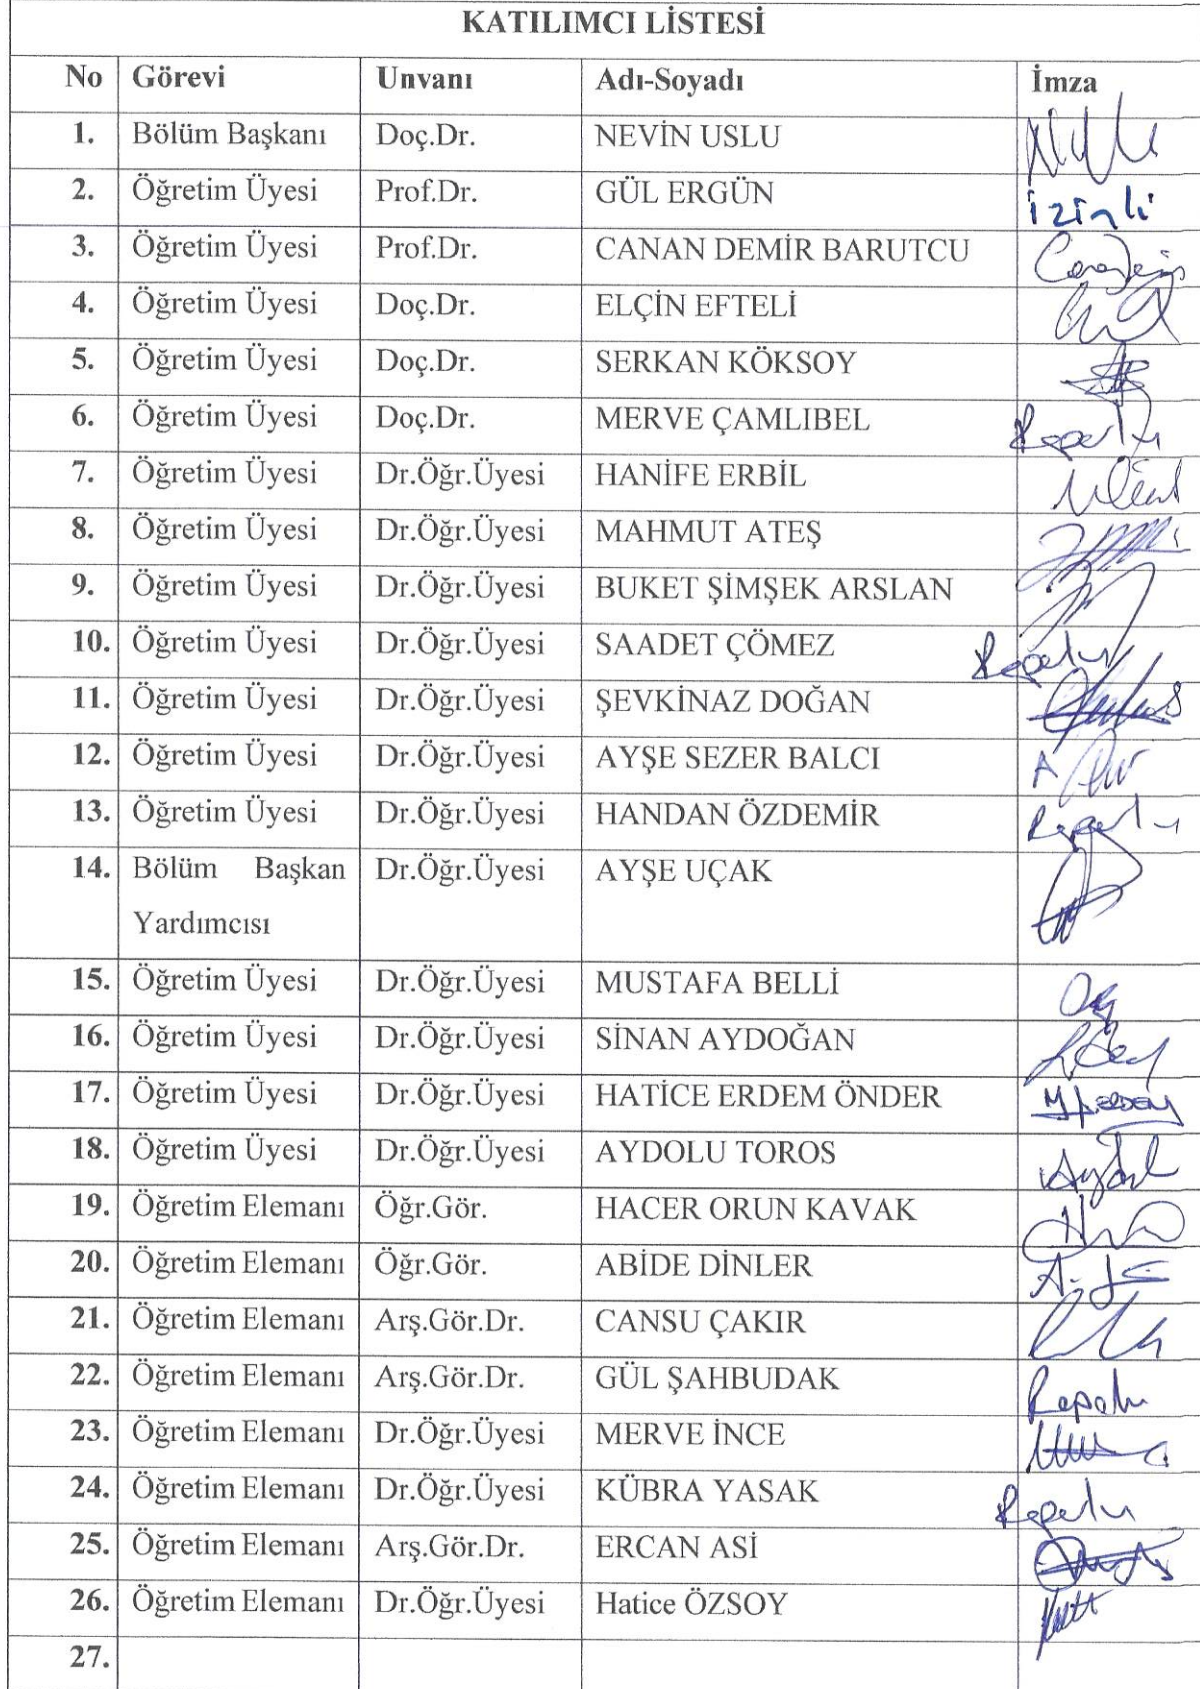 KATILIMCI LİSTESİ
No Görevi Unvanı Adı-Soyadı İmza
1. Bölüm Başkanı Doç.Dr. NEVİN USLU
2. Öğretim Üyesi Prof.Dr. GÜL ERGÜN İzinli
3. Öğretim Üyesi Prof.Dr. CANAN DEMİR BARUTCU
4. Öğretim Üyesi Doç.Dr. ELÇİN EFTELİ
5. Öğretim Üyesi Doç.Dr. SERKAN KÖKSOY
6. Öğretim Üyesi Doç.Dr. MERVE ÇAMLIBEL Raporlu
7. Öğretim Üyesi Dr.Öğr.Üyesi HANİFE ERBİL
8. Öğretim Üyesi Dr.Öğr.Üyesi MAHMUT ATEŞ
9. Öğretim Üyesi Dr.Öğr.Üyesi BUKET ŞİMŞEK ARSLAN
10. Öğretim Üyesi Dr.Öğr.Üyesi SAADET ÇÖMEZ Raporlu
11. Öğretim Üyesi Dr.Öğr.Üyesi ŞEVKİNAZ DOĞAN
12. Öğretim Üyesi Dr.Öğr.Üyesi AYŞE SEZER BALCI
13. Öğretim Üyesi Dr.Öğr.Üyesi HANDAN ÖZDEMİR Raporlu
14. Bölüm Başkan Dr.Öğr.Üyesi AYŞE UÇAK
Yardımcısı
15. Öğretim Üyesi Dr.Öğr.Üyesi MUSTAFA BELLİ
16. Öğretim Üyesi Dr.Öğr.Üyesi SİNAN AYDOĞAN
17. Öğretim Üyesi Dr.Öğr.Üyesi HATİCE ERDEM ÖNDER
18. Öğretim Üyesi Dr.Öğr.Üyesi AYDOLU TOROS
19. Öğretim Elemanı Öğr.Gör. HACER ORUN KAVAK
20. Öğretim Elemanı Öğr.Gör. ABİDE DİNLER
21. Öğretim Elemanı Arş.Gör.Dr. CANSU ÇAKIR
22. Öğretim Elemanı Arş.Gör.Dr. GÜL ŞAHBUDAK Raporlu
23. Öğretim Elemanı Dr.Öğr.Üyesi MERVE İNCE
24. Öğretim Elemanı Dr.Öğr.Üyesi KÜBRA YASAK Raporlu
25. Öğretim Elemanı Arş.Gör.Dr. ERCAN ASİ
26. Öğretim Elemanı Dr.Öğr.Üyesi Hatice ÖZSOY
27.